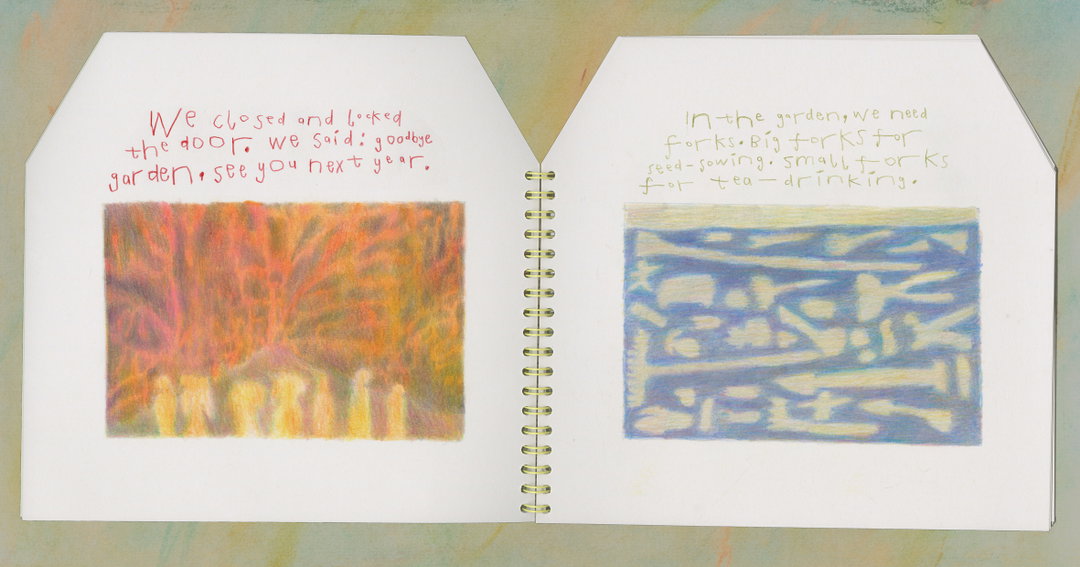 We closed and locked
the door. we said: goodbye
garden, see you next year.
In the garden, we need
forks. Big forks for
seed-sowing. small forks
for tea-drinking.